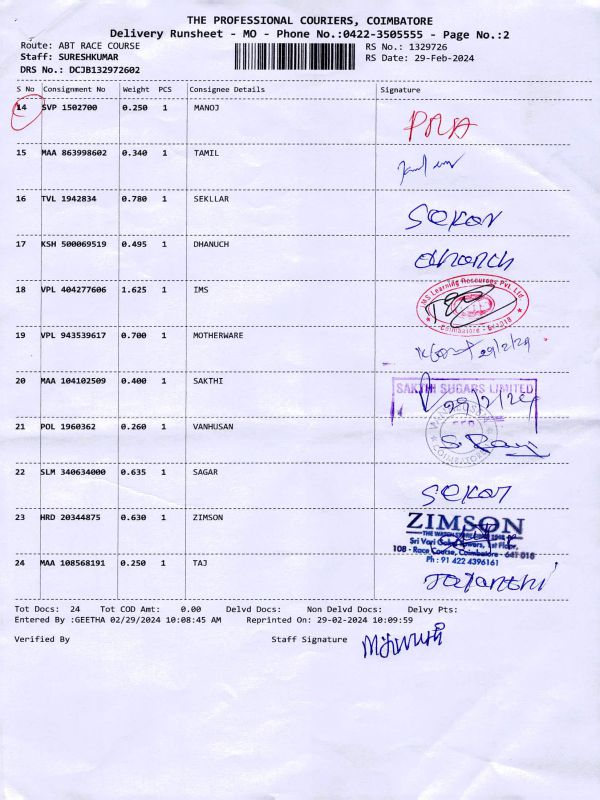 THE PROFESSIONAL COURIERS, COIMBATORE
Delivery Runsheet - MO - Phone No.:0422-3505555 - Page No.:2
Route: ABT RACE COURSE RS No.: 1329726
Staff: SURESHKUMAR RS Date: 29-Feb-2024
DRS No.: DCJB132972602
S No Consignment No Weight PCS Consignee Details Signature
14 SVP 1502700 0.250 1 MANOJ
15 MAA 863998602 0.340 1 TAMIL
16 TVL 1942834 0.780 1 SEKLLAR Sekar
17 KSH 500069519 0.495 1 DHANUCH dhanch
18 VPL 404277606 1.625 1 IMS IMS Learning Resources Pvt. Ltd. Coimbatore - 641018
19 VPL 943539617 0.700 1 MOTHERWARE 29/2/24
20 MAA 104102509 0.400 1 SAKTHI SAKTHI SUGARS LIMITED 29/2/24
21 POL 1960362 0.260 1 VANHUSAN S. Ravi
22 SLM 340634000 0.635 1 SAGAR Sekar
23 HRD 20344875 0.630 1 ZIMSON ZIMSON
Sri Vari Towers, 1st Floor,
108 - Race Course, Coimbatore - 641 018
Ph : 91 422 4396161
24 MAA 108568191 0.250 1 TAJ Jayanthi
Tot Docs: 24 Tot COD Amt: 0.00 Delvd Docs: Non Delvd Docs: Delvy Pts:
Entered By :GEETHA 02/29/2024 10:08:45 AM Reprinted On: 29-02-2024 10:09:59
Verified By Staff Signature